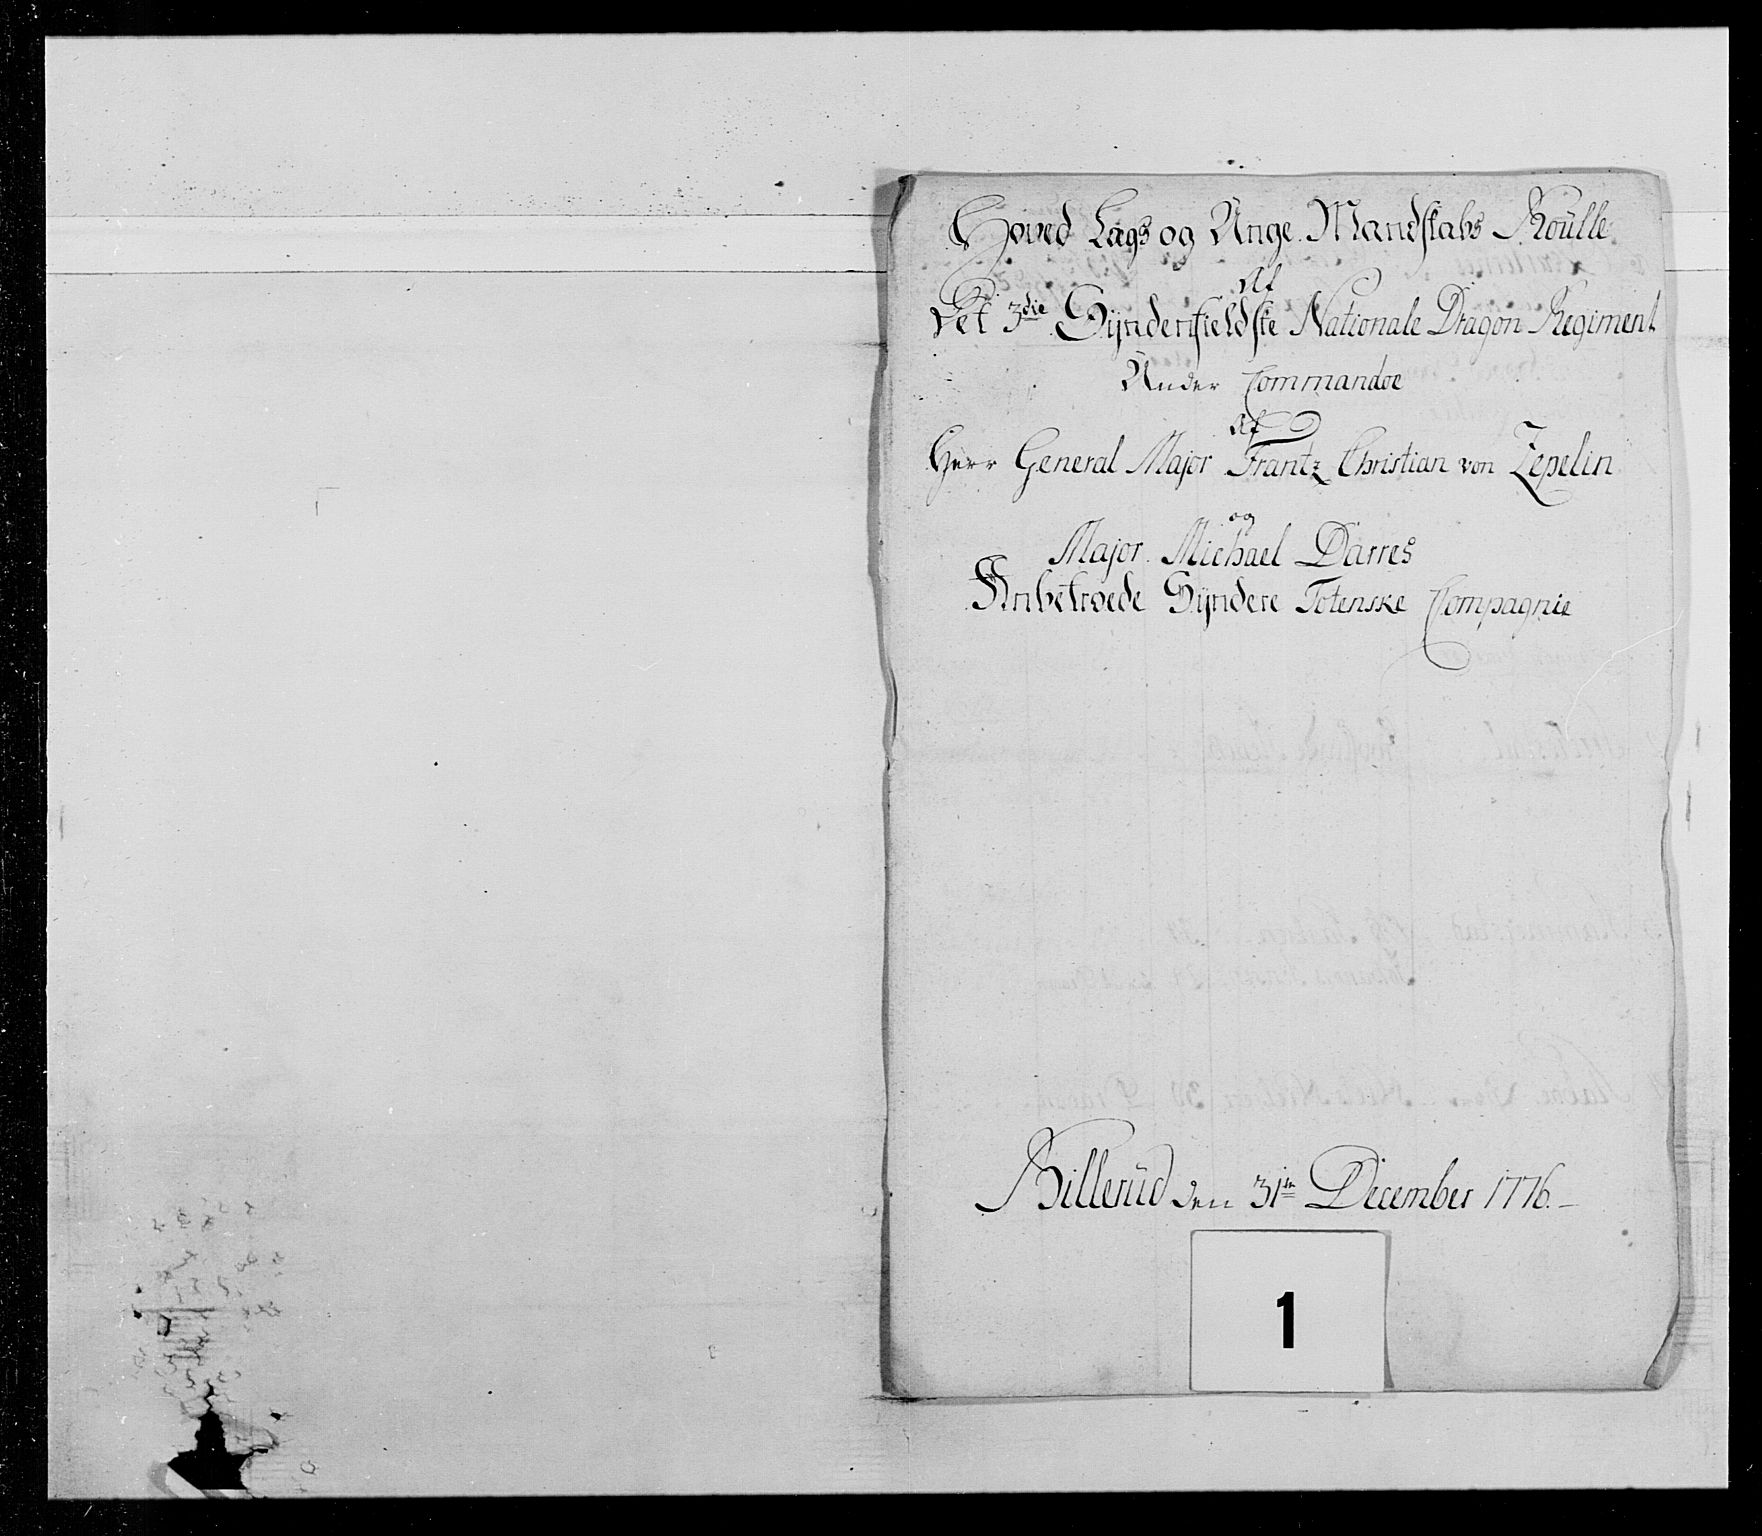 Hoved Lægs og Unge Mandskabs Roulle
Af
Det 3die Syndenfieldske Nationale Dragon Regiment
Under Commandoe
Af
Herr General Major Frantz Christian von Zepelin
og
Major Michael Darres
Anbetroede Syndere Totenske Compagnie
Billerud den 31te December 1776.
1